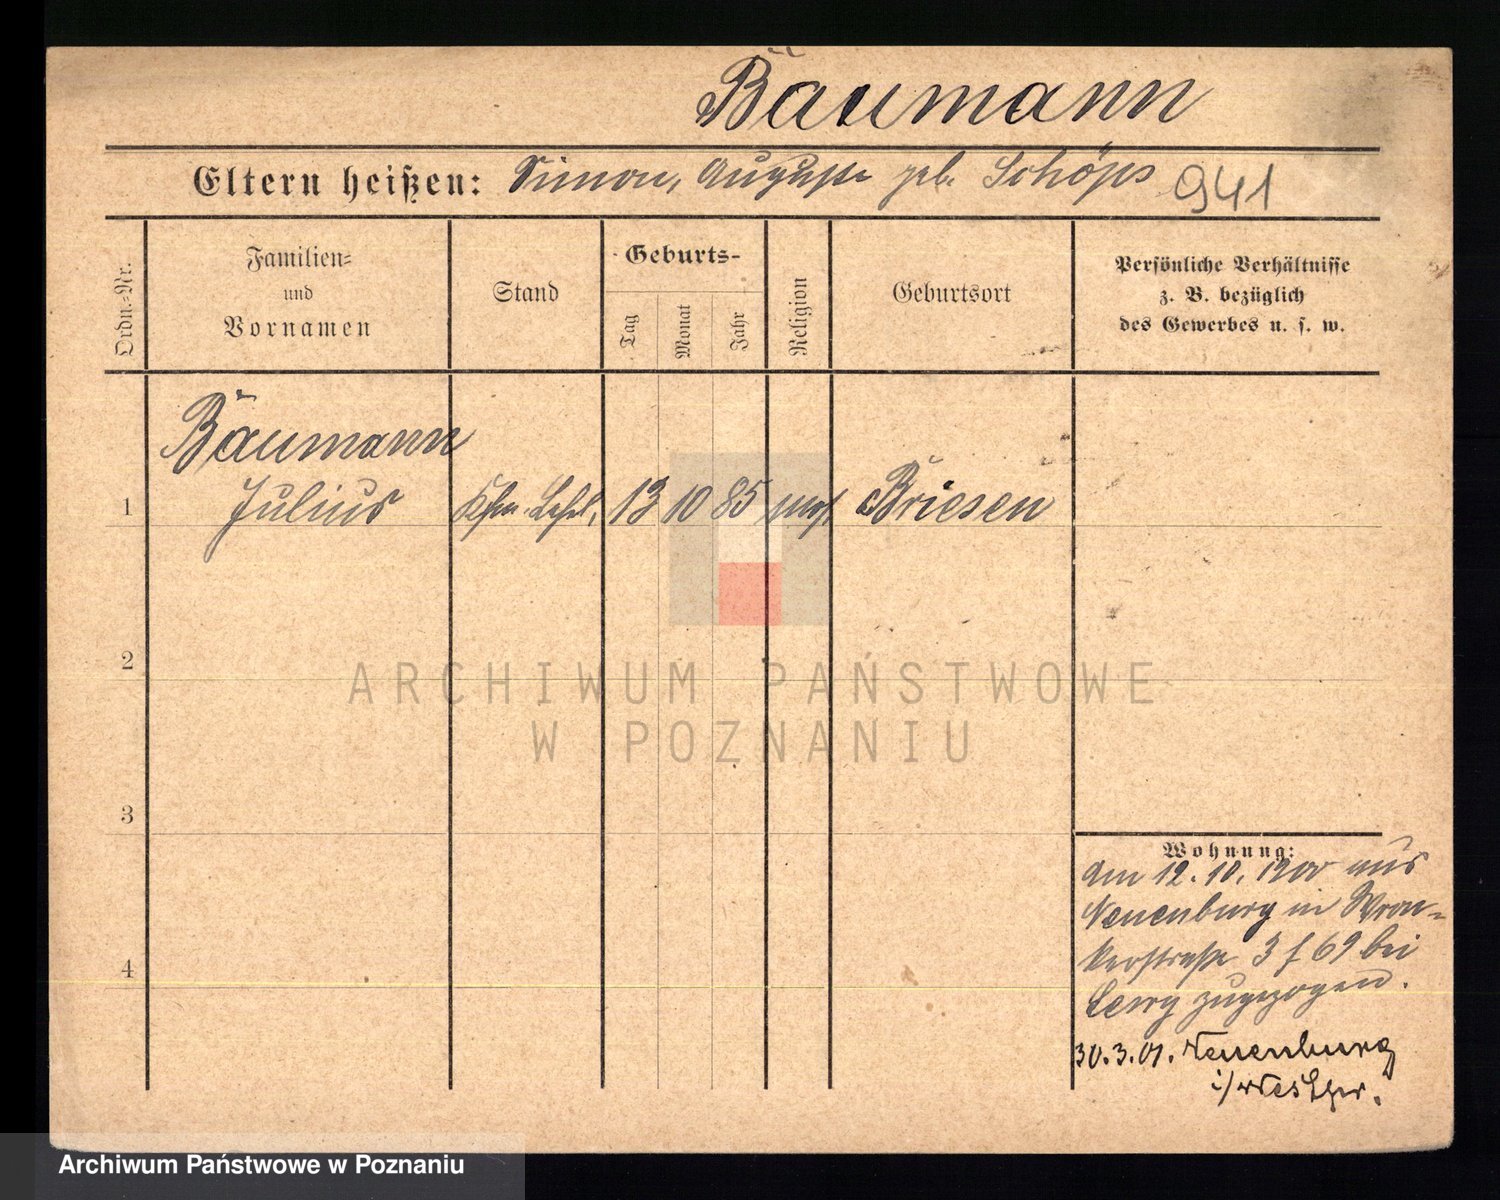 Bäumann
Eltern heißen: Simon, Auguste geb. Schöps 941
Ordn.-Nr.
Familien-
und
Vornamen
Stand
Geburts-
Tag
Monat
Jahr
Religion
Geburtsort
Persönliche Verhältnisse
z. B. bezüglich
des Gewerbes u. s. w.
Bäumann
1 Julius Kfm. Lehrl. 13 10 85 mos Briesen
2
ARCHIWUM PAŃSTWOWE
W POZNANIU
3
Wohnung:
Am 12. 10. 1900 aus
Neuenburg in Wron-
4
kerstraße 3 f 69 bei
zugezogen.
30.3.01. Neuenburg
i/Westpr.
Archiwum Państwowe w Poznaniu